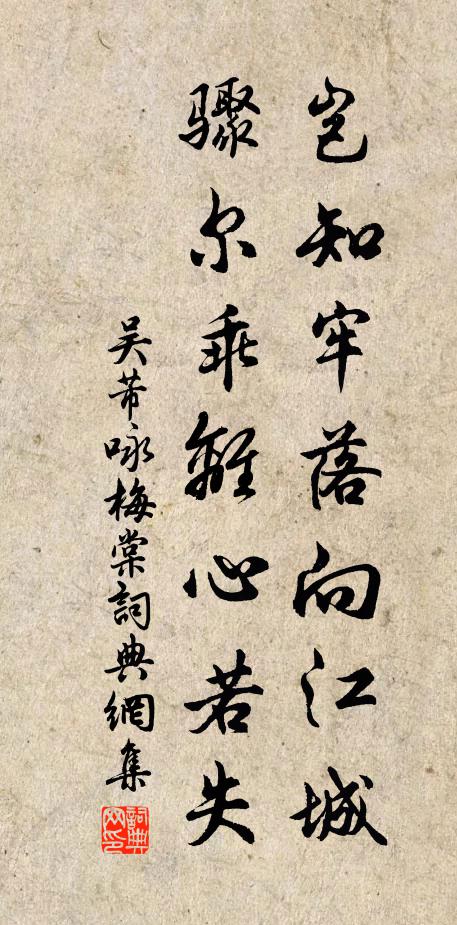 岂知牢落向江城
骤尔乖離心若失
吴芾咏梅棠詞典網集
詞典
网印